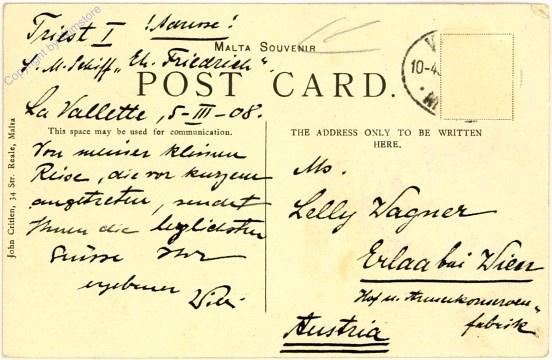 Triest I !Adresse!
S. M. Schiff „Eh. Friedrich"
MALTA SOUVENIR
POST CARD.
La Vallette, 5-III-08.
This space may be used for communication.
Von meiner kleinen
Reise, die vor kurzem
angetreten, sendet
Ihnen die herzlichsten
Grüsse Ihr
ergebener
THE ADDRESS ONLY TO BE WRITTEN
HERE.
Lelly Wagner
Erlaa bei Wien
Hof u. Armeekonserven-
fabrik
Austria
10-4
John Critien, 34 Str. Reale, Malta